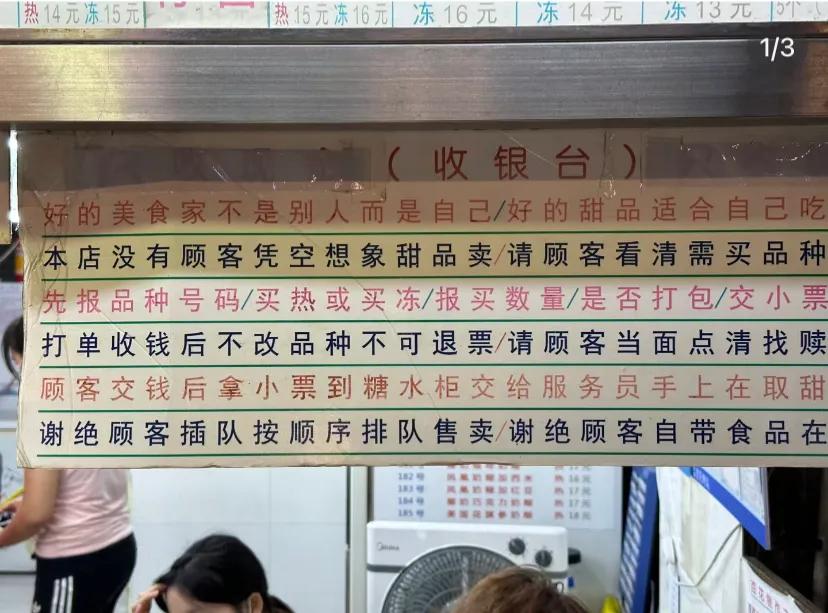 热14元 冻15元 热15元 冻16元 冻16元 冻14元 冻13元
1/3
（收银台）
好的美食家不是别人而是自己/好的甜品适合自己吃
本店没有顾客凭空想象甜品卖/请顾客看清需买品种
先报品种号码/买热或买冻/报买数量/是否打包/交小票
打单收钱后不改品种不可退票/请顾客当面点清找赎
顾客交钱后拿小票到糖水柜交给服务员手上在取甜
谢绝顾客插队按顺序排队售卖/谢绝顾客自带食品在
182号 热16元
183号 热17元
184号 热17元
185号 热18元
Midea